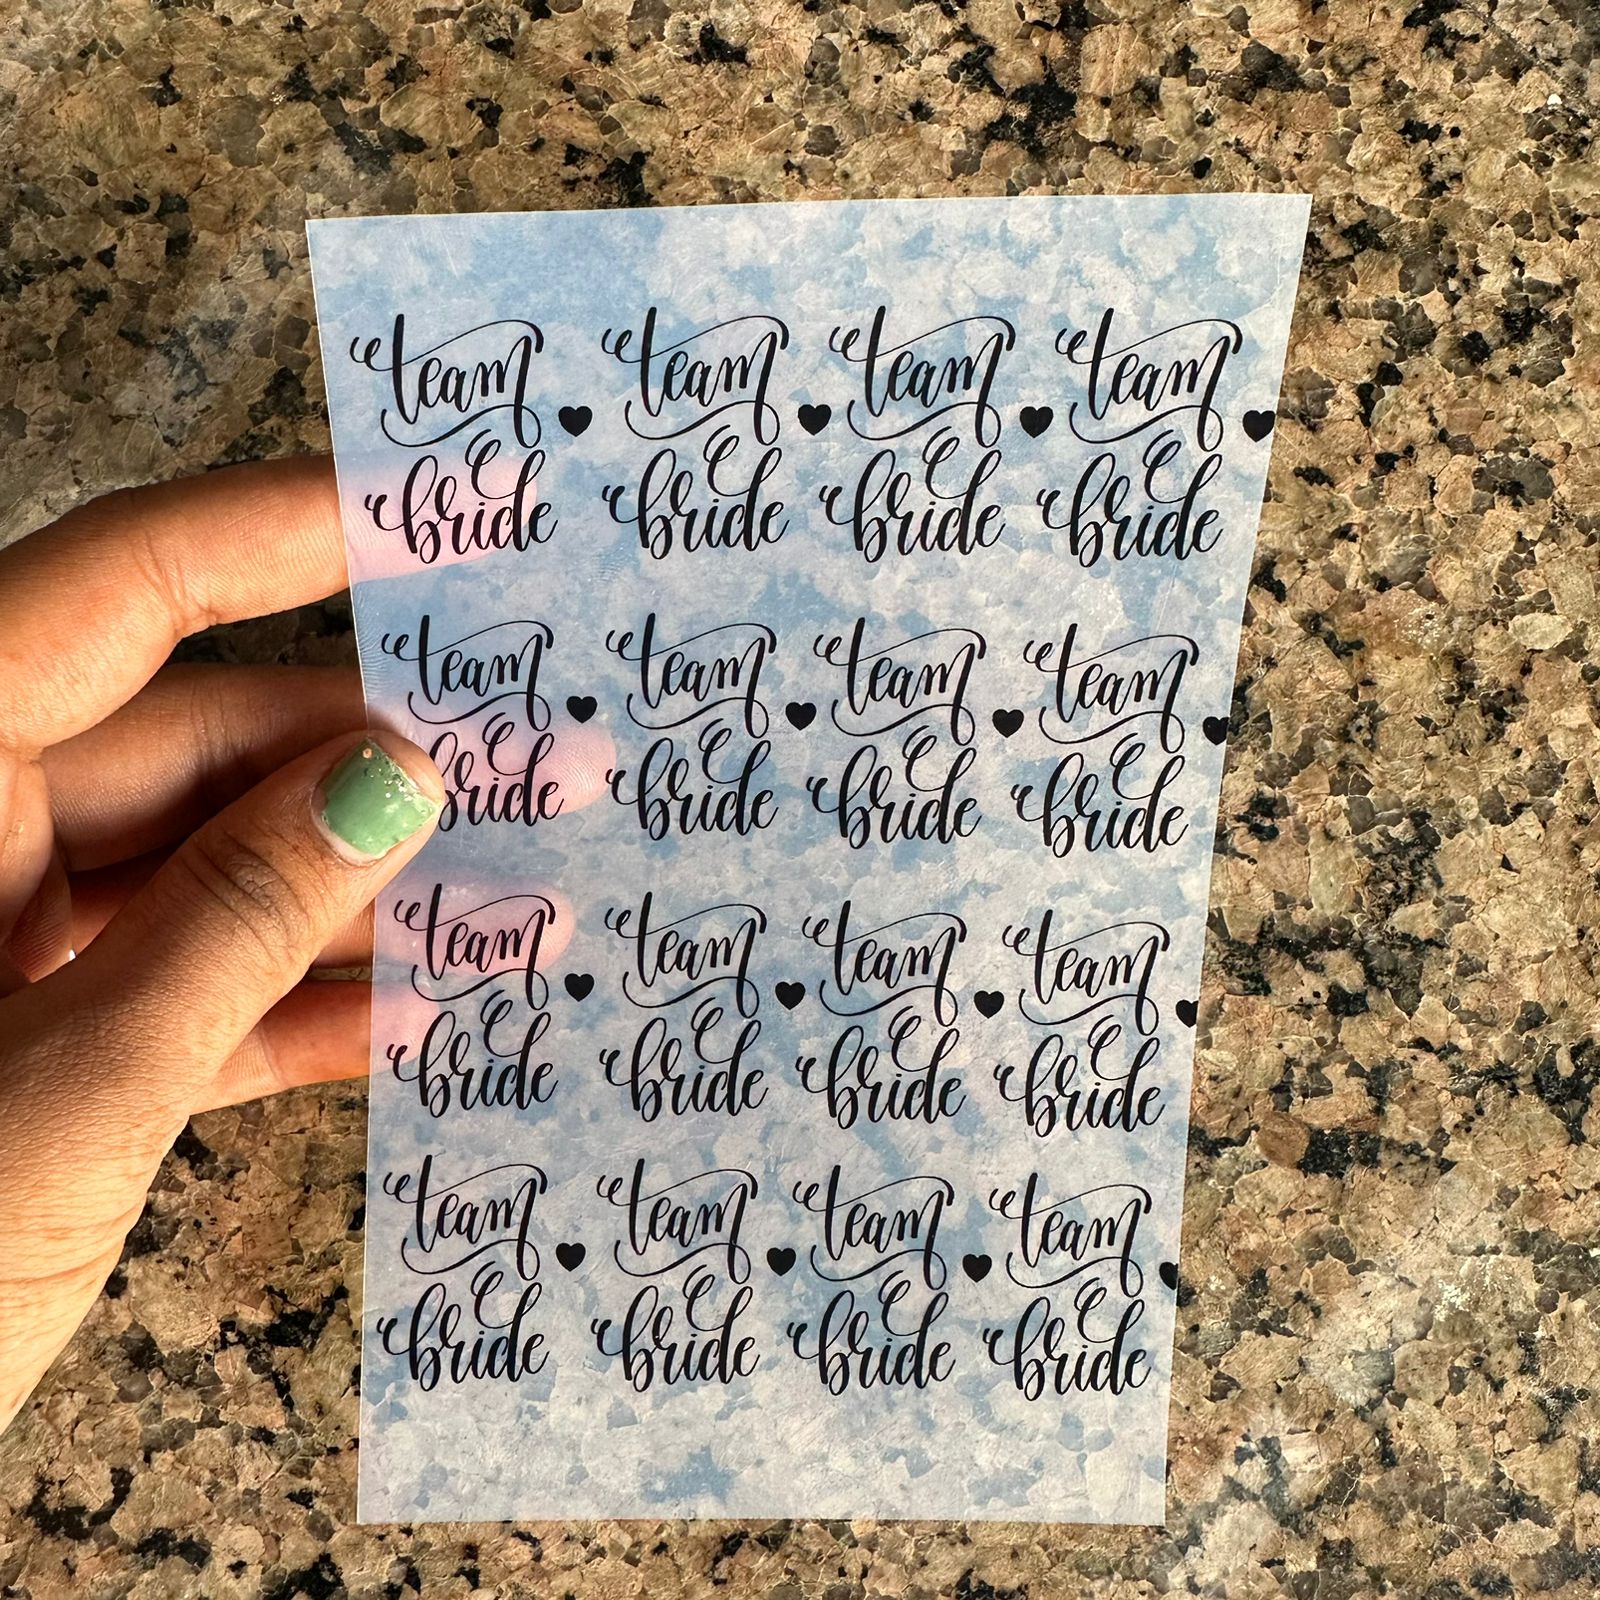 team team team team
bride bride bride bride
team team team team
bride bride bride bride
team team team team
bride bride bride bride
team team team team
bride bride bride bride